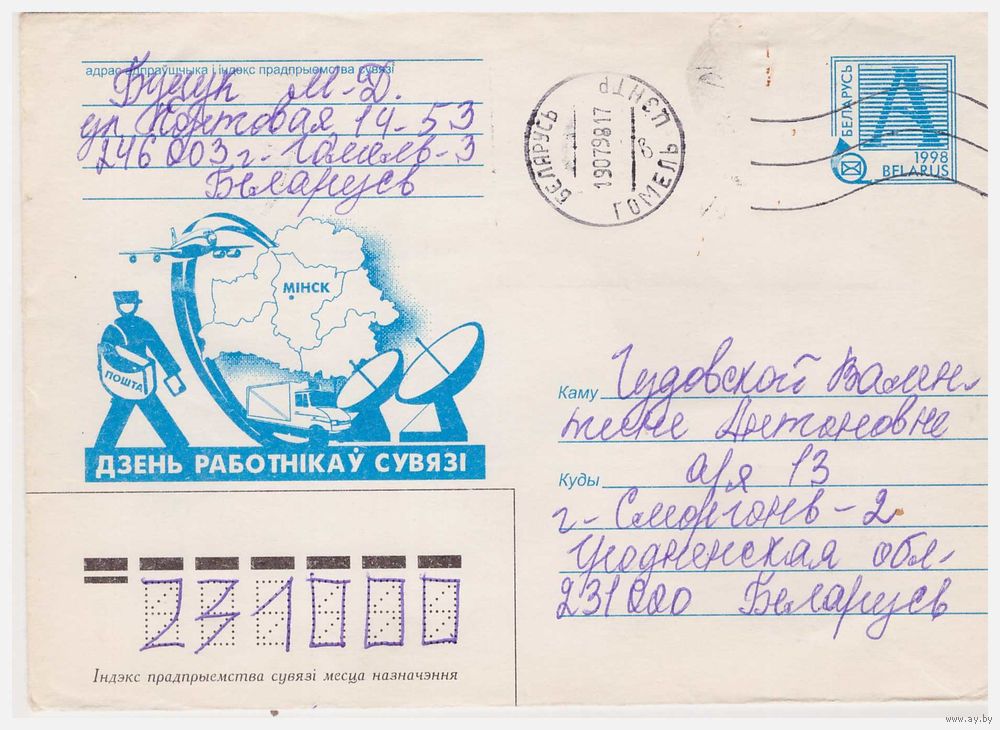 адрас адпраўшчыка і індэкс прадпрыемства сувязі
М-Д.
ул Портовая 14-53
246003 г-Гомель-3
Беларусь
БЕЛАРУСЬ
ГОМЕЛЬ ЦЭНТР
19079817
8
БЕЛАРУСЬ
А
1998
BELARUS
МІНСК
ПОШТА
ДЗЕНЬ РАБОТНІКАЎ СУВЯЗІ
Каму Чудовской Вален
тине Антоновне
Куды а/я 13
г-Сморгонь-2
Гродненская обл-
231000 Беларусь
231000
Індэкс прадпрыемства сувязі месца назначэння
www.ay.by